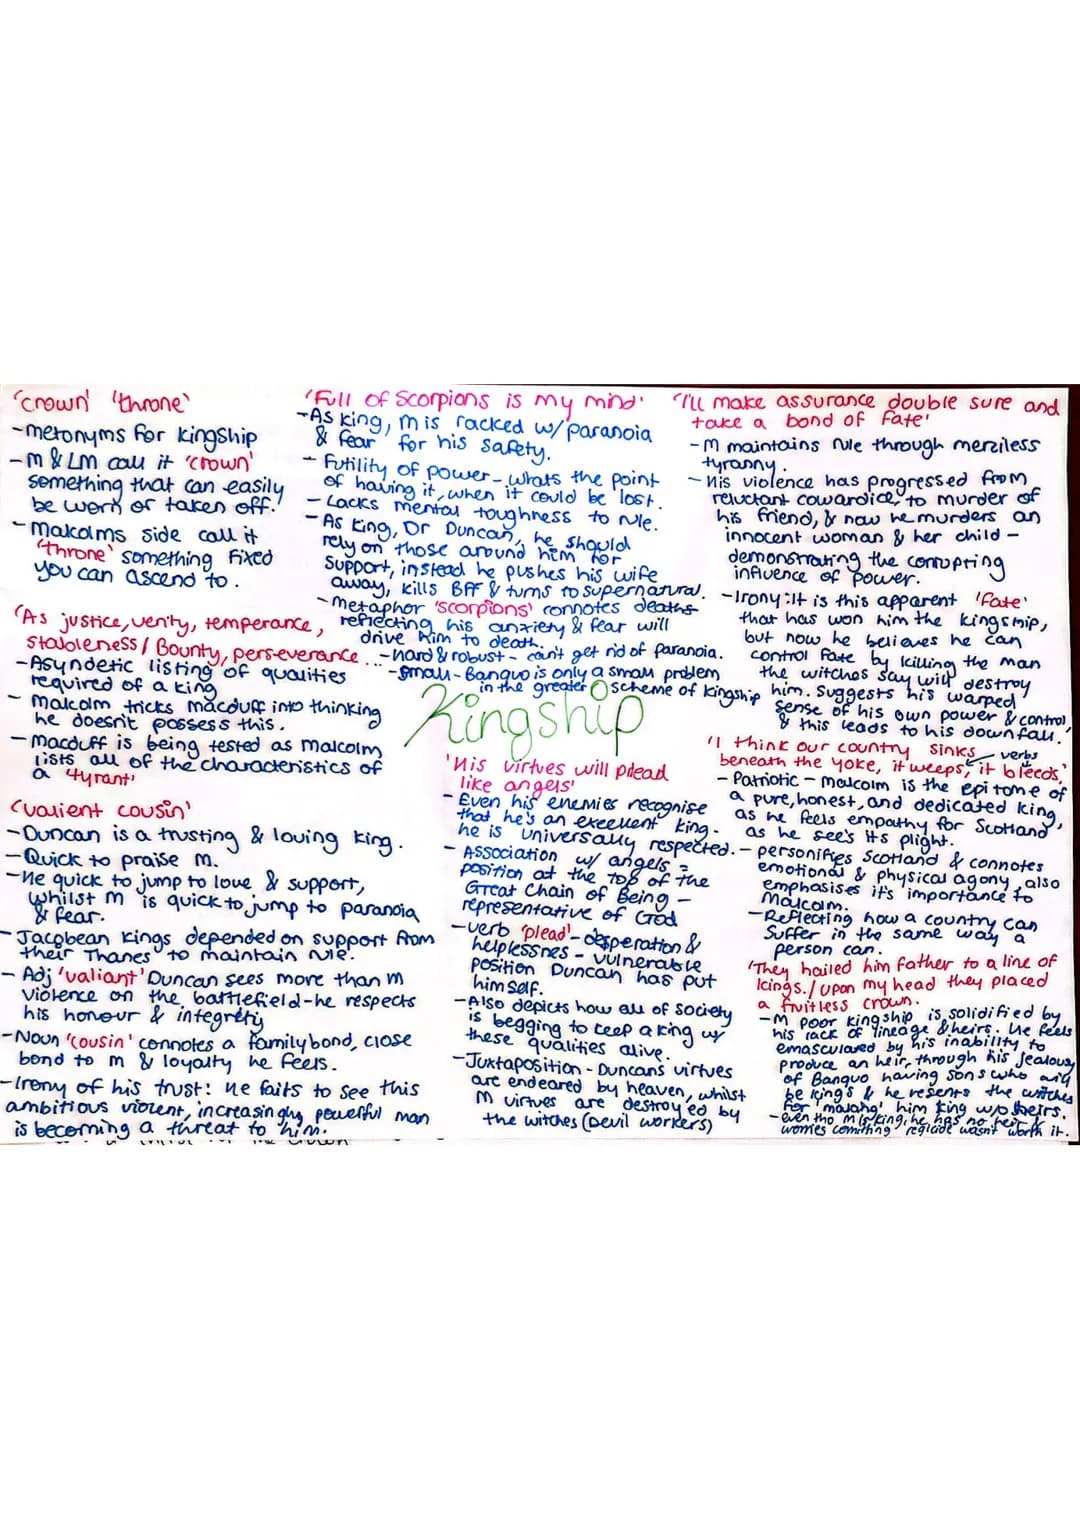 'crown' 'throne'
- metonyms for kingship
- M & LM call it 'crown'
something that can easily
be worn or taken off.
- Malcolms side call it
'throne' something fixed
you can ascend to.
'As justice, verity, temperance,
stableness / Bounty, perseverance...
- Asyndetic listing of qualities
required of a king
- Malcolm tricks macduff into thinking
he doesn't possess this.
- Macduff is being tested as Malcolm
lists all of the characteristics of
a 'tyrant'
'valient cousin'
- Duncan is a trusting & loving king.
- Quick to praise M.
- He quick to jump to love & support,
whilst M is quick to jump to paranoia
& fear.
- Jacobean kings depended on support from
their Thanes to maintain rule.
- Adj 'valiant' Duncan sees more than M
violence on the battlefield - he respects
his honour & integrety
- Noun 'cousin' connotes a family bond, close
bond to M & loyalty he feels.
- Irony of his trust: he fails to see this
ambitious violent, increasingly powerful man
is becoming a threat to him.
'Full of Scorpions is my mind'
- As king, M is racked w/ paranoia
& fear for his safety.
- Futility of power - whats the point
of having it, when it could be lost.
- Lacks mental toughness to rule.
- As King, Or Duncan, he should
rely on those around him for
support, instead he pushes his wife
away, kills BFF & turns to supernatural.
- metaphor 'scorpions' connotes deaths
reflecting his anxiety & fear will
drive him to death.
- hard & robust - can't get rid of paranoia.
- small - Banquo is only a small problem
in the greater scheme of kingship
Kingship
'His virtues will plead
like angels'
- Even his enemies recognise
that he's an execllent king.
he is universally respected.
- Association w/ angels =
position at the top of the
Great Chain of Being -
representative of God
- verb 'plead' - desperation &
helplessnes - vulnerable
position Duncan has put
himself.
- Also depicts how all of society
is begging to keep a king w/
these qualities alive.
- Juxtaposition - Duncans virtues
are endeared by heaven, whilst
M virtues are destroyed by
the witches (Devil workers)
'I'll make assurance double sure and
take a bond of Fate'
- M maintains rule through merciless
tyranny.
- His violence has progressed from
reluctant cowardice, to murder of
his friend, & now he murders an
innocent woman & her child -
demonstrating the corrupting
influence of power.
- Irony: It is this apparent 'Fate'
that has won him the kingship,
but now he believes he can
control fate by killing the man
the witches say will destroy
him. Suggests his warped
sense of his own power & control,
& this leads to his downfall.
'I think our country sinks verbs
beneath the yoke, it weeps, it bleeds,'
- Patriotic - Malcolm is the epitome of
a pure, honest, and dedicated king,
as he feels empathy for Scotland
as he see's its plight.
- personifies Scotland & connotes
emotional & physical agony, also
emphasises it's importance to
Malcolm.
- Reflecting how a country can
suffer in the same way a
person can.
'They hailed him father to a line of
kings. / upon my head they placed
a fruitless crown.
- M poor kingship is solidified by
his lack of lineage & heirs. He feels
emasculated by his inability to
produce an heir, through his jealousy
of Banquo having sons who will
be kings & he resents the witches
for 'making' him king w/o heirs.
- even tho M is king, he has no heir &
worries comitting regicide wasn't worth it.